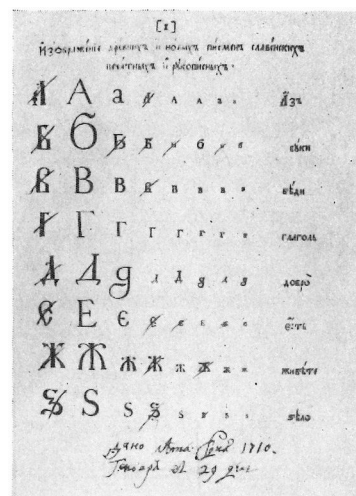 [1]
Изображенїе древнихъ и новыхъ писменъ славенскихъ
печатныхъ и рукописныхъ.
А А а а а а а а азъ
Б Б Б Б Б б Б Б буки
В В в в в в в в вѣди
Г Г г г г г г г глаголь
Д Д д д д д д д добро
Є Е є є є є є є есть
Ж Ж ж ж ж ж ж ж живѣте
Ѕ Ѕ ѕ ѕ ѕ ѕ ѕ ѕ ѕѣло
дано лѣта 1710.
Генваря 29 дня